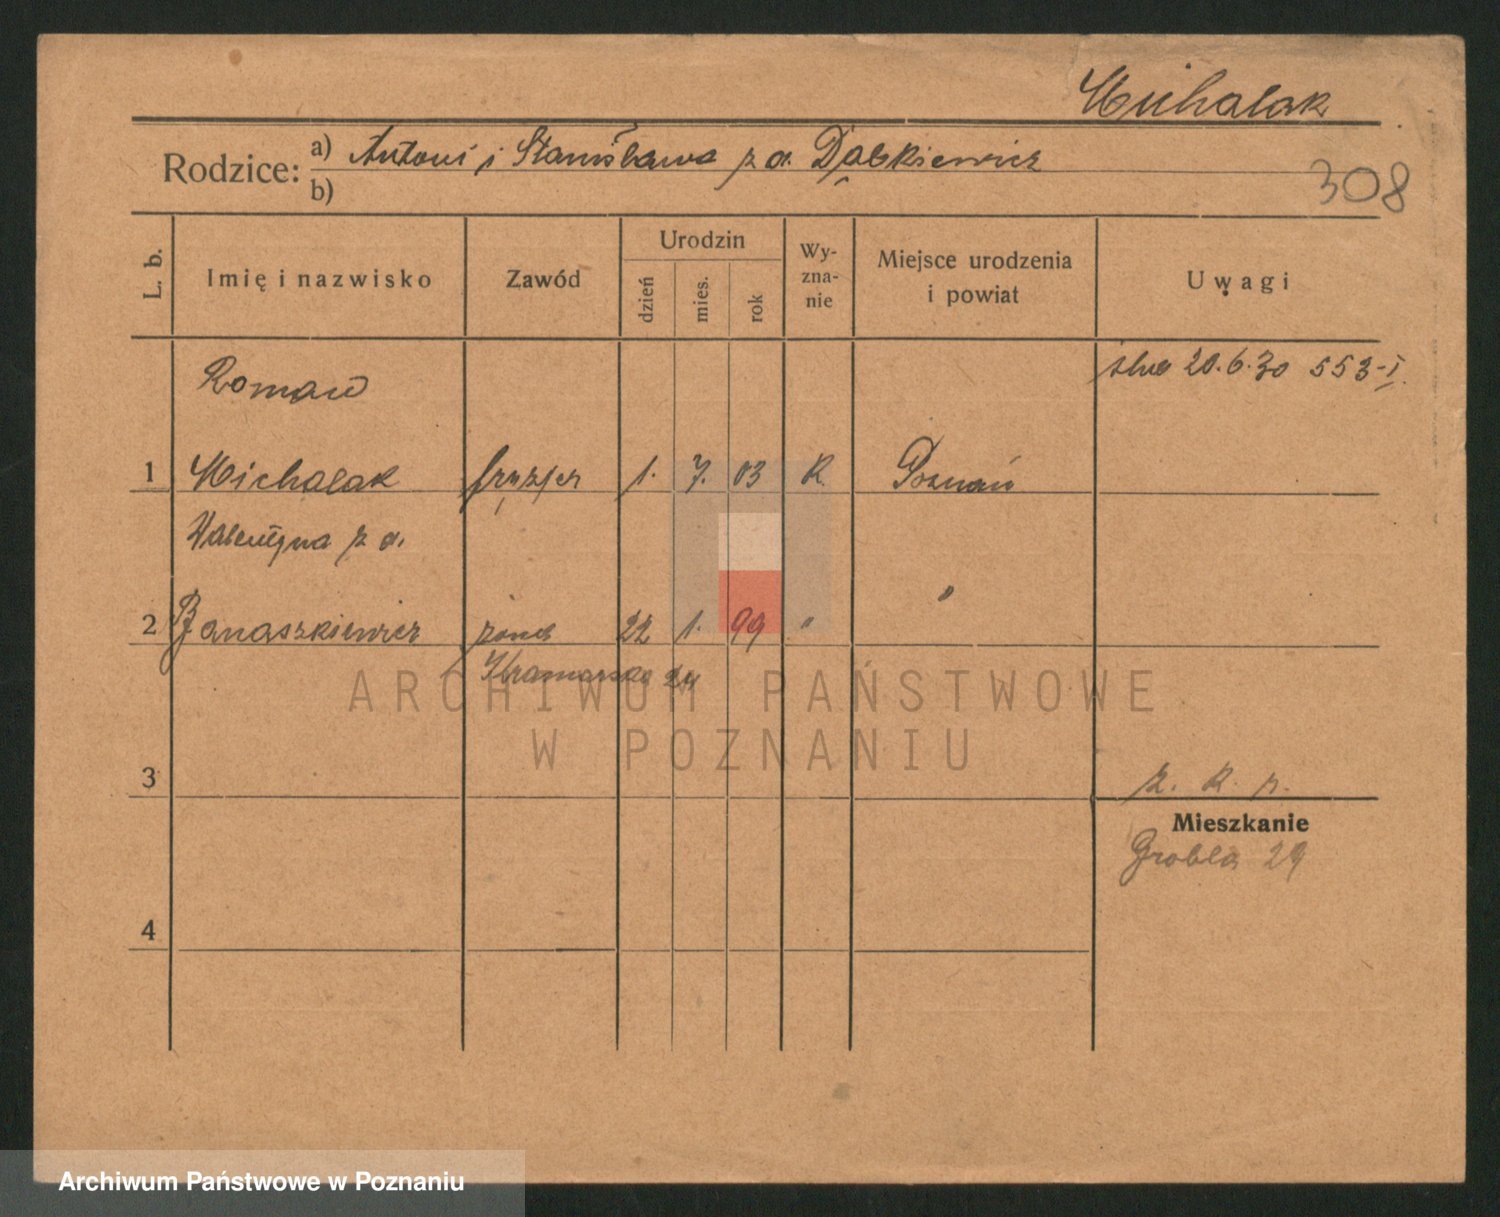 Michalak
Rodzice: a) Antoni i Stanisława z d. Dąbkiewicz
b)
308
L. b.
Imię i nazwisko
Zawód
Urodzin
dzień
mies.
rok
Wy-
zna-
nie
Miejsce urodzenia
i powiat
Uwagi
Roman
ślub 20.6.30 553-I
1 Michalak fryzjer 1. 7. 03 R. Poznań
Walentyna z d.
2 Banaszkiewicz żona 22 1. 99 " "
Kramarska 24
ARCHIWUM PAŃSTWOWE
W POZNANIU
3
z. k. p.
Mieszkanie
Grobla 29
4
Archiwum Państwowe w Poznaniu